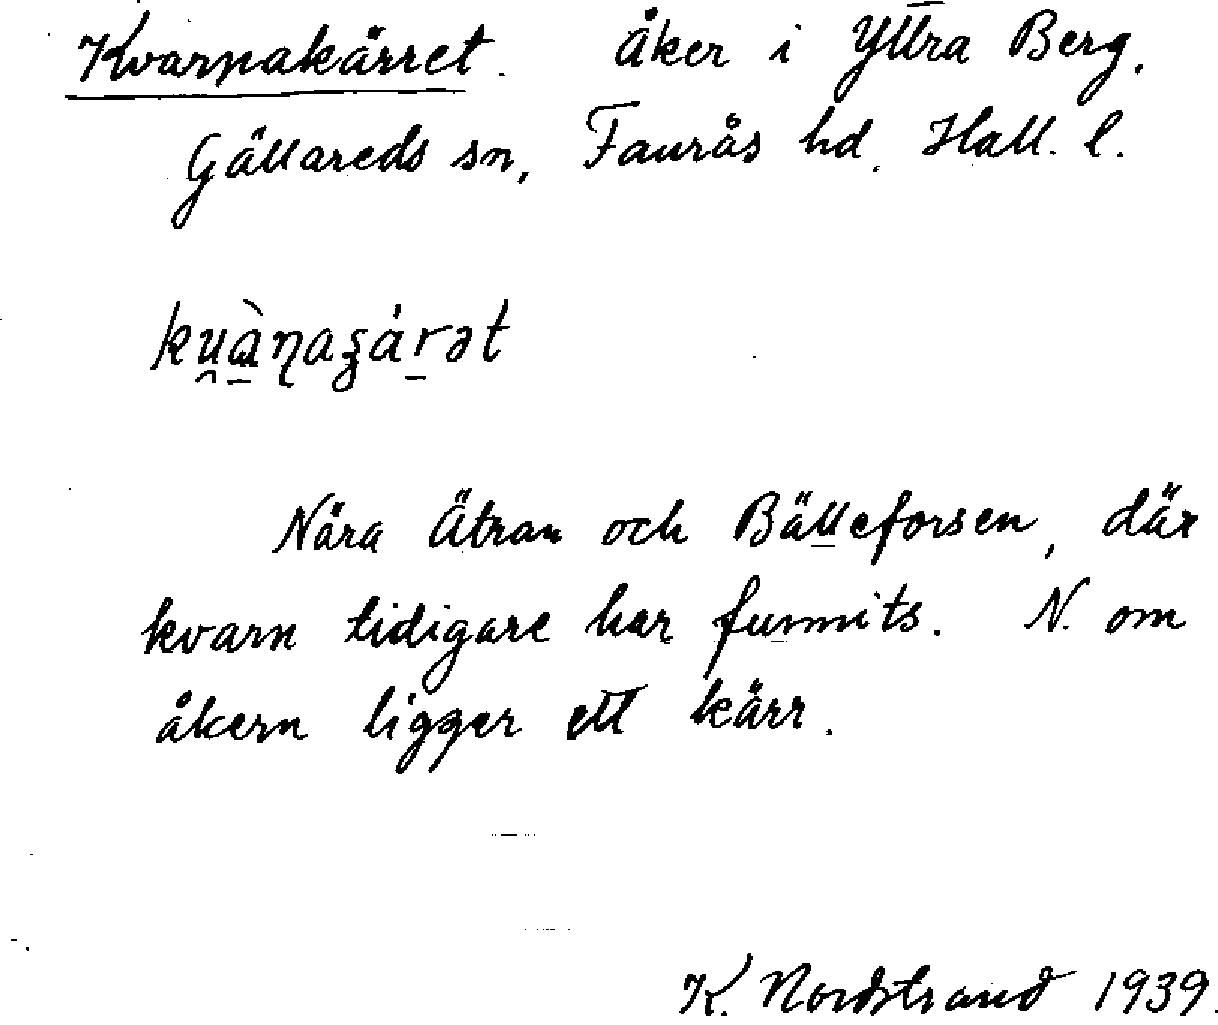 Kvarnakärret. åker i Yttra Berg.
Gällareds sn, Faurås hd. Hall. l.
ku̯à̱ɳaʓárət
Nära Ätran och Bälleforsen, där
kvarn tidigare har funnits. N. om
åkern ligger ett kärr.
K. Nordstrand 1939.